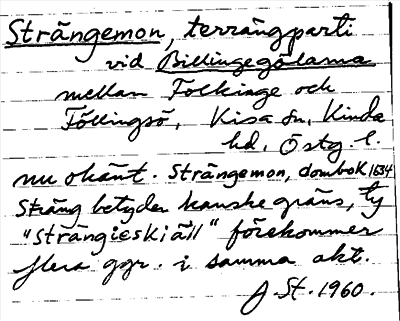 Strängemon, terrängparti
vid Billingegölarna
mellan Folkinge och
Föllingsö, Kisa sn, Kinda
hd, Östg. l.
nu okänt. Strängemon, dombok 1634
Sträng betyder kanske gräns, ty
"strängieskiäll" förekommer
flera ggr. i samma akt.
J. St. 1960.